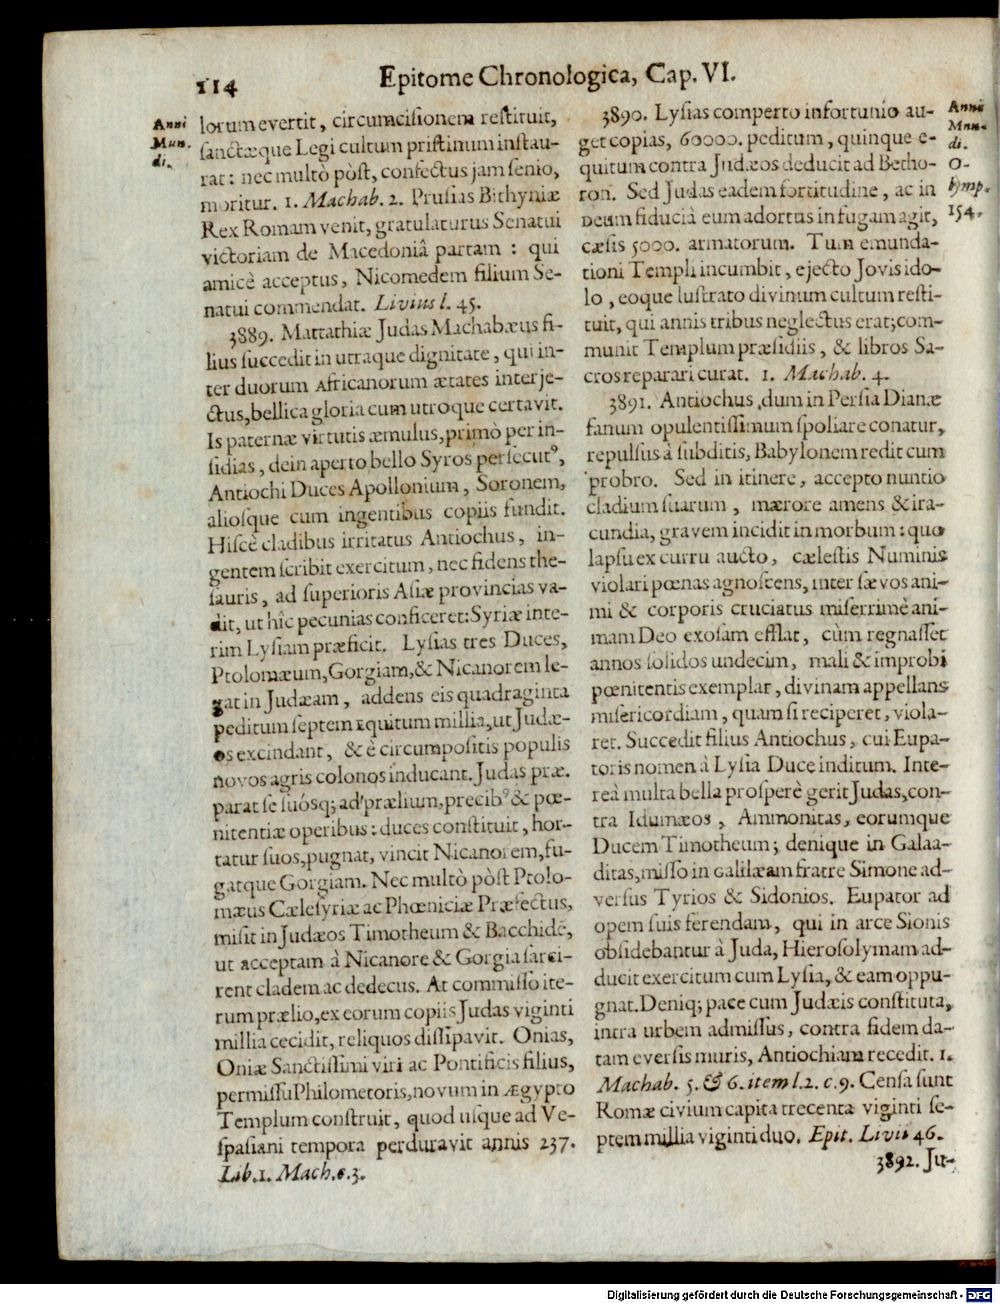 114 Epitome Chronologica, Cap. VI.
Anni
Mun-
di.
lorum evertit, circumcisionem restituit,
sanctæque Legi cultum pristinum instau-
rat: nec multò pòst, confectus jam senio,
moritur. 1. Machab. 2. Prusias Bithyniæ
Rex Romam venit, gratulaturus Senatui
victoriam de Macedoniâ partam: qui
amicè acceptus, Nicomedem filium Se-
natui commendat. Livius l. 45.
3889. Mattathiæ Judas Machabæus fi-
lius succedit in utraque dignitate, qui in-
ter duorum Africanorum ætates interje-
ctus, bellica gloria cum utroque certavit.
Is paternæ virtutis æmulus, primò per in-
sidias, dein aperto bello Syros persecutꝰ,
Antiochi Duces Apollonium, Soronem,
aliosque cum ingentibus copiis fundit.
Hisce cladibus irritatus Antiochus, in-
gentem scribit exercitum, nec fidens the-
sauris, ad superioris Asiæ provincias va-
dit, ut hîc pecunias conficeret: Syriæ inte-
rim Lysiam præficit. Lysias tres Duces,
Ptolomæum, Gorgiam, & Nicanorem le-
gat in Judæam, addens eis quadraginta
peditum septem equitum millia, ut Judæ-
os excindant, & è circumpositis populis
novos agris colonos inducant. Judas præ-
parat se suósq; ad prælium, precibꝰ & pœ-
nitentiæ operibus: duces constituit, hor-
tatur suos, pugnat, vincit Nicanorem, fu-
gatque Gorgiam. Nec multò pòst Ptolo-
mæus Cælesyriæ ac Phœniciæ Præfectus,
misit in Judæos Timotheum & Bacchidē,
ut acceptam à Nicanore & Gorgia sarci-
rent cladem ac dedecus. At commisso ite-
rum prælio, ex eorum copiis Judas viginti
millia cecidit, reliquos dissipavit. Onias,
Oniæ Sanctissimi viri ac Pontificis filius,
permissu Philometoris, novum in Ægypto
Templum construit, quod usque ad Ve-
spasiani tempora perduravit annis 237.
Lib. 1. Mach. c. 3.
3890. Lysias comperto infortunio au-
get copias, 60000. peditum, quinque e-
quitum contra Judæos deducit ad Betho-
ron. Sed Judas eadem fortitudine, ac in
Deum fiduciâ eum adortus in fugam agit,
cæsis 5000. armatorum. Tum emunda-
tioni Templi incumbit, ejecto Jovis ido-
lo, eoque lustrato divinum cultum resti-
tuit, qui annis tribus neglectus erat; com-
munit Templum præsidiis, & libros Sa-
cros reparari curat. 1. Machab. 4.
3891. Antiochus, dum in Persia Dianæ
fanum opulentissimum spoliare conatur,
repulsus à subditis, Babylonem redit cum
probro. Sed in itinere, accepto nuntio
cladium suarum, mærore amens & ira-
cundia, gravem incidit in morbum: quo
lapsu ex curru aucto, cælestis Numinis
violari pœnas agnoscens, inter sævos ani-
mi & corporis cruciatus miserrimè ani-
mam Deo exosam efflat, cùm regnasset
annos solidos undecim, mali & improbi
pœnitentis exemplar, divinam appellans
misericordiam, quam si reciperet, viola-
ret. Succedit filius Antiochus, cui Eupa-
toris nomen à Lysia Duce inditum. Inte-
reà multa bella prosperè gerit Judas, con-
tra Idumæos, Ammonitas, eorumque
Ducem Timotheum; denique in Galaa-
ditas, misso in Galilæam fratre Simone ad-
versus Tyrios & Sidonios. Eupator ad
opem suis ferendam, qui in arce Sionis
obsidebantur à Juda, Hierosolymam ad-
ducit exercitum cum Lysia, & eam oppu-
gnat. Deniq; pace cum Judæis constituta,
intra urbem admissus, contra fidem da-
tam eversis muris, Antiochiam recedit. 1.
Machab. 5. & 6. item l. 2. c. 9. Censa sunt
Romæ civium capita trecenta viginti se-
ptem millia viginti duo. Epit. Livii 46.
3892. Ju-
Anni
Mun-
di.
O-
lymp.
154.
Digitalisierung gefördert durch die Deutsche Forschungsgemeinschaft - DFG